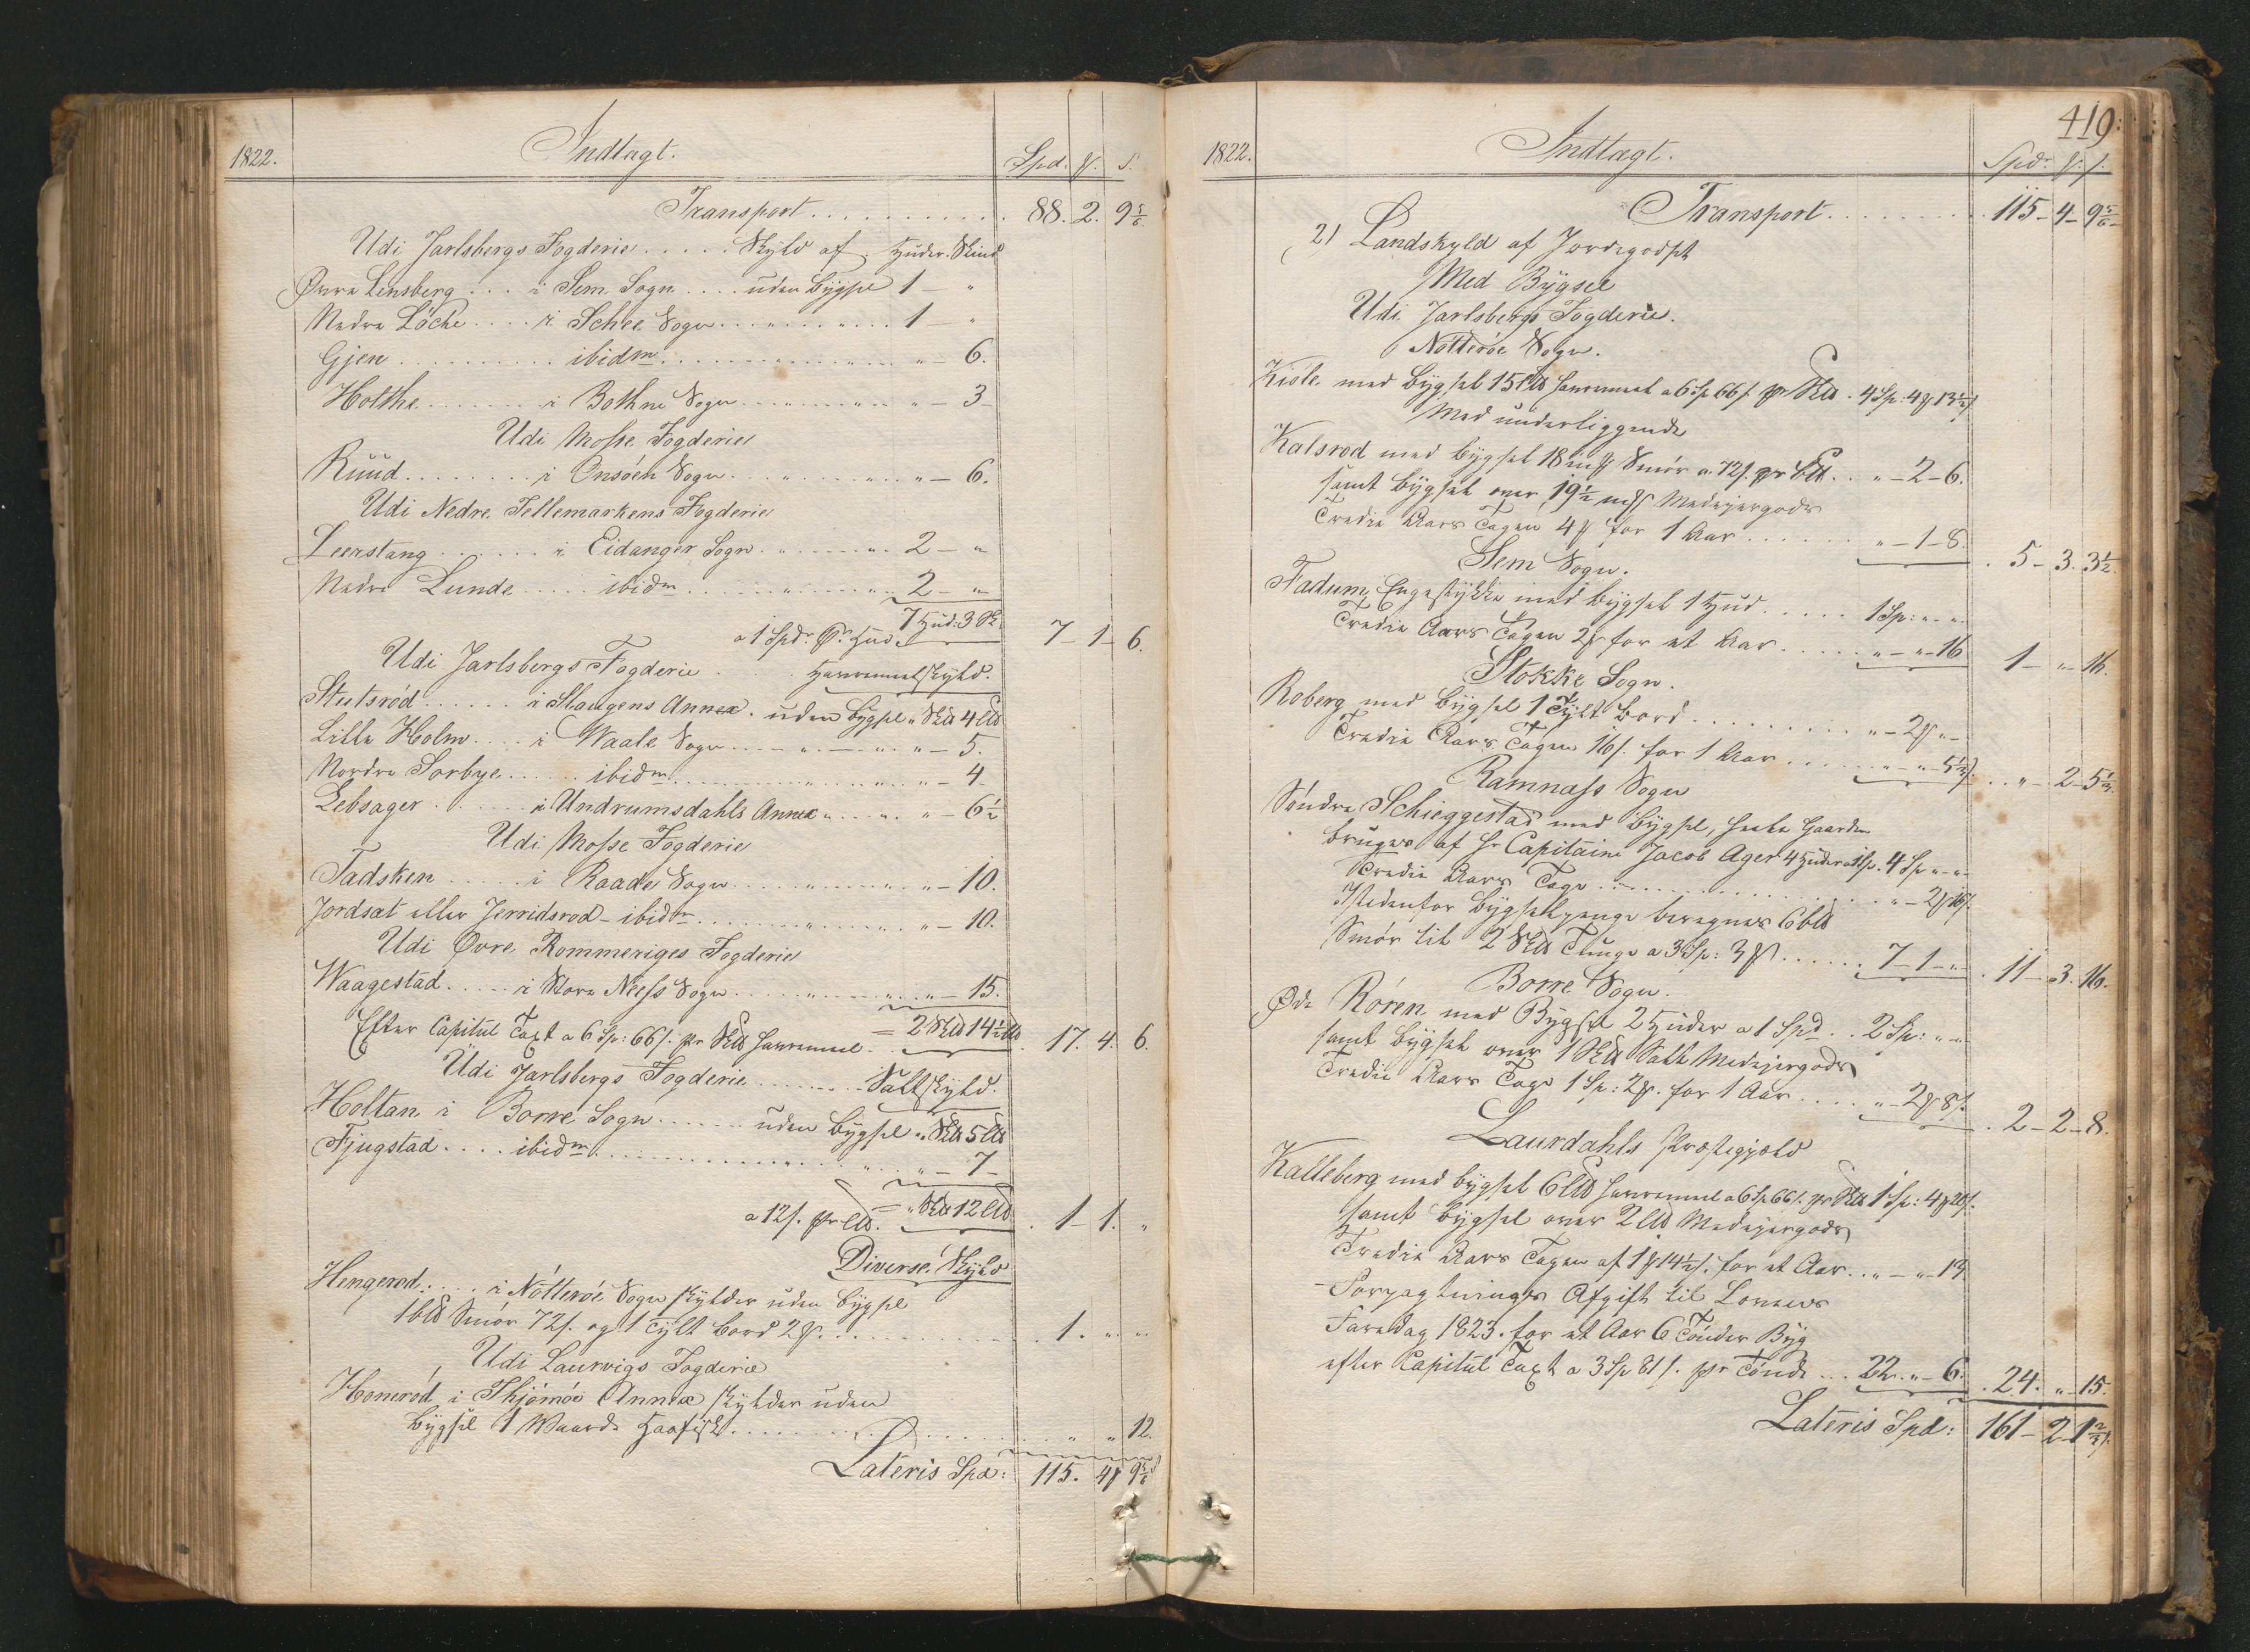 1822. Indtægt. Spd. ß. s.
Transport . . . 88. 2. 9 5/6
Udi Jarlsbergs Fogderie . . . Skyld af Huder. Skind
Øvre Linsberg . . . i Sem Sogn . . . uden Bÿgsel 1 — "
Nedre Löche . . . i Schee Sogn . . . " . . . " . . . 1 — "
Gjen . . . ibidm . . . " — 6.
Holthe . . . i Bothne Sogn . . . " . . . " — 3
Udi Mosse Fogderie
Rüüd . . . i Onsöen Sogn . . . " . . . " — 6.
Udi Nedre Tellemarkens Fogderie
Leerstang . . . i Eidanger Sogn . . . " . . . 2 — "
Nedre Lunde . . . ibidm . . . " . . . 2 — "
7 Hüd: 3 Sk.
a 1 Spdr. Pr. Hud. 7 — 1 — 6.
Udi Jarlsbergs Fogderie . . . Havremelskÿld.
Stutsröd . . . i Slaugens Annex. uden Bÿgsel " Sk℔ 4 L℔
Lille Holm . . . i Waale Sogn . . . " — 5.
Nordre Sorbye . . . ibidm . . . " — 4
Lebsager . . . i Undrumsdahls Annex " . . . " — 6½
Udi Mosse Fogderie
Tadsken . . . i Raade Sogn . . . " — 10.
Jordsæt eller Jerridsrod - ibidm . . . " — 10.
Udi Øvre Rommeriges Fogderie
Waagestad . . . i Store Neess Sogn . . . " — 15.
= 2 Sk℔ 14½ L℔
Efter Capitul Taxt a 6 Sp: 66 s. pr Sk℔ Havremeel . . . 17. 4. 6.
Üdi Jarlsbergs Fogderie . . . Saltskÿld.
Holtan i Borre Sogn . . . uden Bÿgsel " Sk℔ 5 L℔
Fjugstad . . . ibidm . . . " . . . " — 7 —
= " Sk℔ 12 L℔
a 12 s. pr L℔. . 1 — 1. "
Diverse Skÿld
Hengerod . . . i Nötteröe Sogn skÿlder uden Bÿgsel
1 b℔ Smör 72 s. og 1 Tÿlt Bord 2 ß. . . . 1. " "
Udi Laurvigs Fogderie
Honeröd i Thjömöe Annex skÿlder uden
Bÿgsel 1 Waarde Haafisk . . . " " 12.
Lateris Spd: 115. 4 ß 9 5/6
419.
1822. Indtægt. Spdr. ß. s.
Transport . . . 115 — 4 — 9 5/6
2) Landskyld af Jordegodset
Med Bÿgsel
Udi Jarlsbergs Fogderie.
Nötteröe Sogn.
Kiole med Bÿgsel 15 L℔ Havremeel a 6 Sp 66 s. pr Sk℔. 4 Sp: 4 ß 13½ s
Med underliggende
Kalsrod med Bÿgsel 18 m℔ Smör a 72 s. pr b℔ . . . " — 2 — 6.
samt Bÿgsel over 19½ m℔ Medejergods
Tredie Aars Tagen 4 ß for 1 Aar . . . " — 1 — 8. . 5 — 3. 3½.
Sem Sogn.
Fadum, Engestÿkke med Bÿgsel 1 Hud . . . 1 Sp: " — "
Tredie Aars Tagen 2 ß for et Aar . . . " — " — 16 1 — " — 16.
Stokke Sogn.
Roberg med Bÿgsel 1 Tÿlt Bord . . . " — 2 ß " —
Tredie Aars Tagen 16 s. for 1 Aar . . . " — " — 5⅓ s. . . " — 2 — 5⅓.
Ramnæss Sogn
Söndre Schieggestad med Bÿgsel, hele Gaarden
brüges af Hr Capitaine Jacob Ager 4 Huder a 1 Sp. 4 Sp " — "
Tredie Aars Tage . . . " — 2 ß 16 s.
Istedenfor Bÿgselpenge beregnes 6 b℔
Smör til 2 Sk℔ Tunge a 3 Sp: 3 ß . . . 7 — 1 — " . 11 — 3. 16.
Borre Sogn.
Øde Rören med Bÿgsel 2 Huder a 1 Spd . . 2 Sp: " — "
samt Bÿgsel over 1 Sk℔ Salt Medejergods
Tredie Aars Tage 1 Sp: 2 ß. for 1 Aar . . . " — 2 ß 8 s. . 2 — 2 — 8.
Laurdahls Præstegjæld
Kalleberg med Bÿgsel 6 L℔ Havremeel a 6 Sp 66 s. pr Sk℔ 1 Sp: 4 ß 20 s.
samt Bÿgsel over 2 L℔ Medejergods
Tredie Aars Tagen af 1 ß 14½ s. for et Aar . . " — " — 13.
Forpagtnings Afgift til
Faredag 1823. for et Aar 6 Tönder Bÿg
efter Capitul Taxt a 3 Sp 81 s. pr Tönde . . . 22. " — 6. . 24. " — 15.
Lateris Spd: 161 — 2 — 1⅔ s.